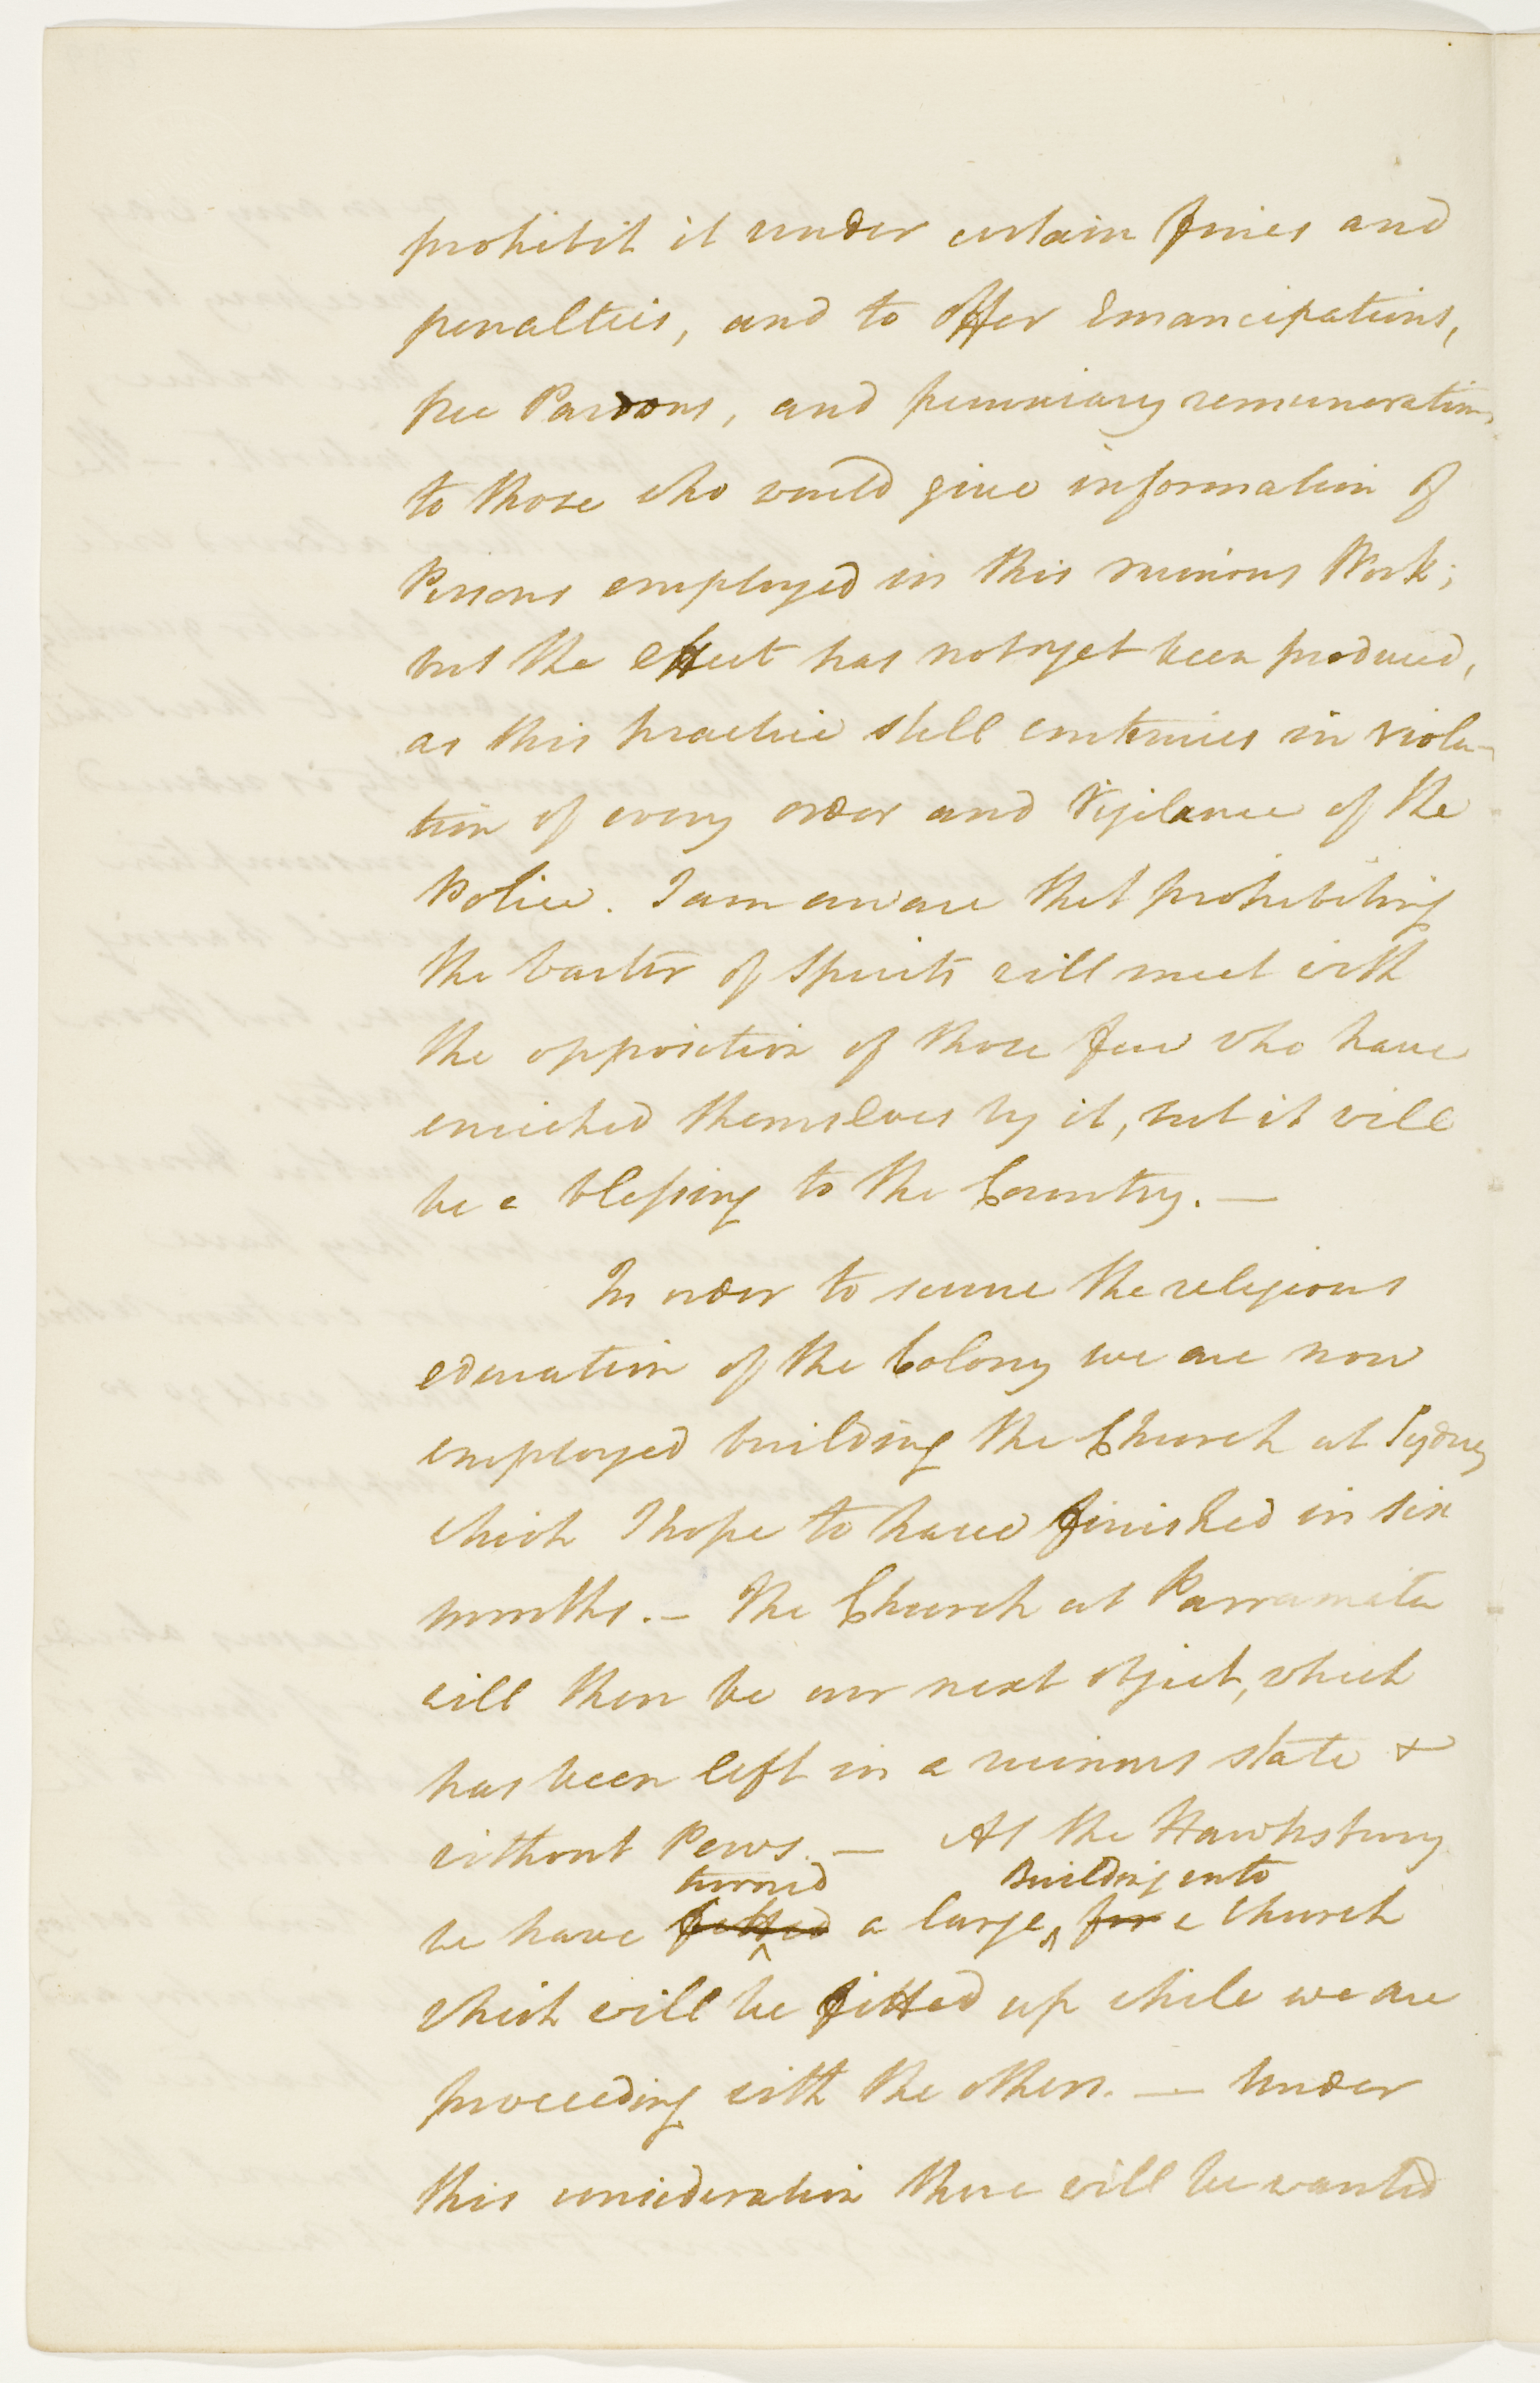 prohibit it under certain fines and
penalties, and to offer Emancipations,
free Pardons, and pecuniary remunerations
to those who would give information of
Persons employed in this ruinous Work;
but the effect has not yet been produced,
as this practice still continues in viola-
tion of every order and Vigilance of the
Police. I am aware that prohibiting
the barter of Spirits will meet with
the opposition of those few who have
enriched themselves by it, but it will
be a blessing to the Country. —
In order to secure the religious
education of the Colony we are now
employed building the Church at Sydney
which I hope to have finished in six
months. — The Church at Parramatta
will then be our next object, which
has been left in a ruinous state &
without Pews. — At the Hawksbury
turned Building into
we have fitted a large ^ for a Church
which will be fitted up while we are
proceeding with the others. — Under
this consideration there will be wanted